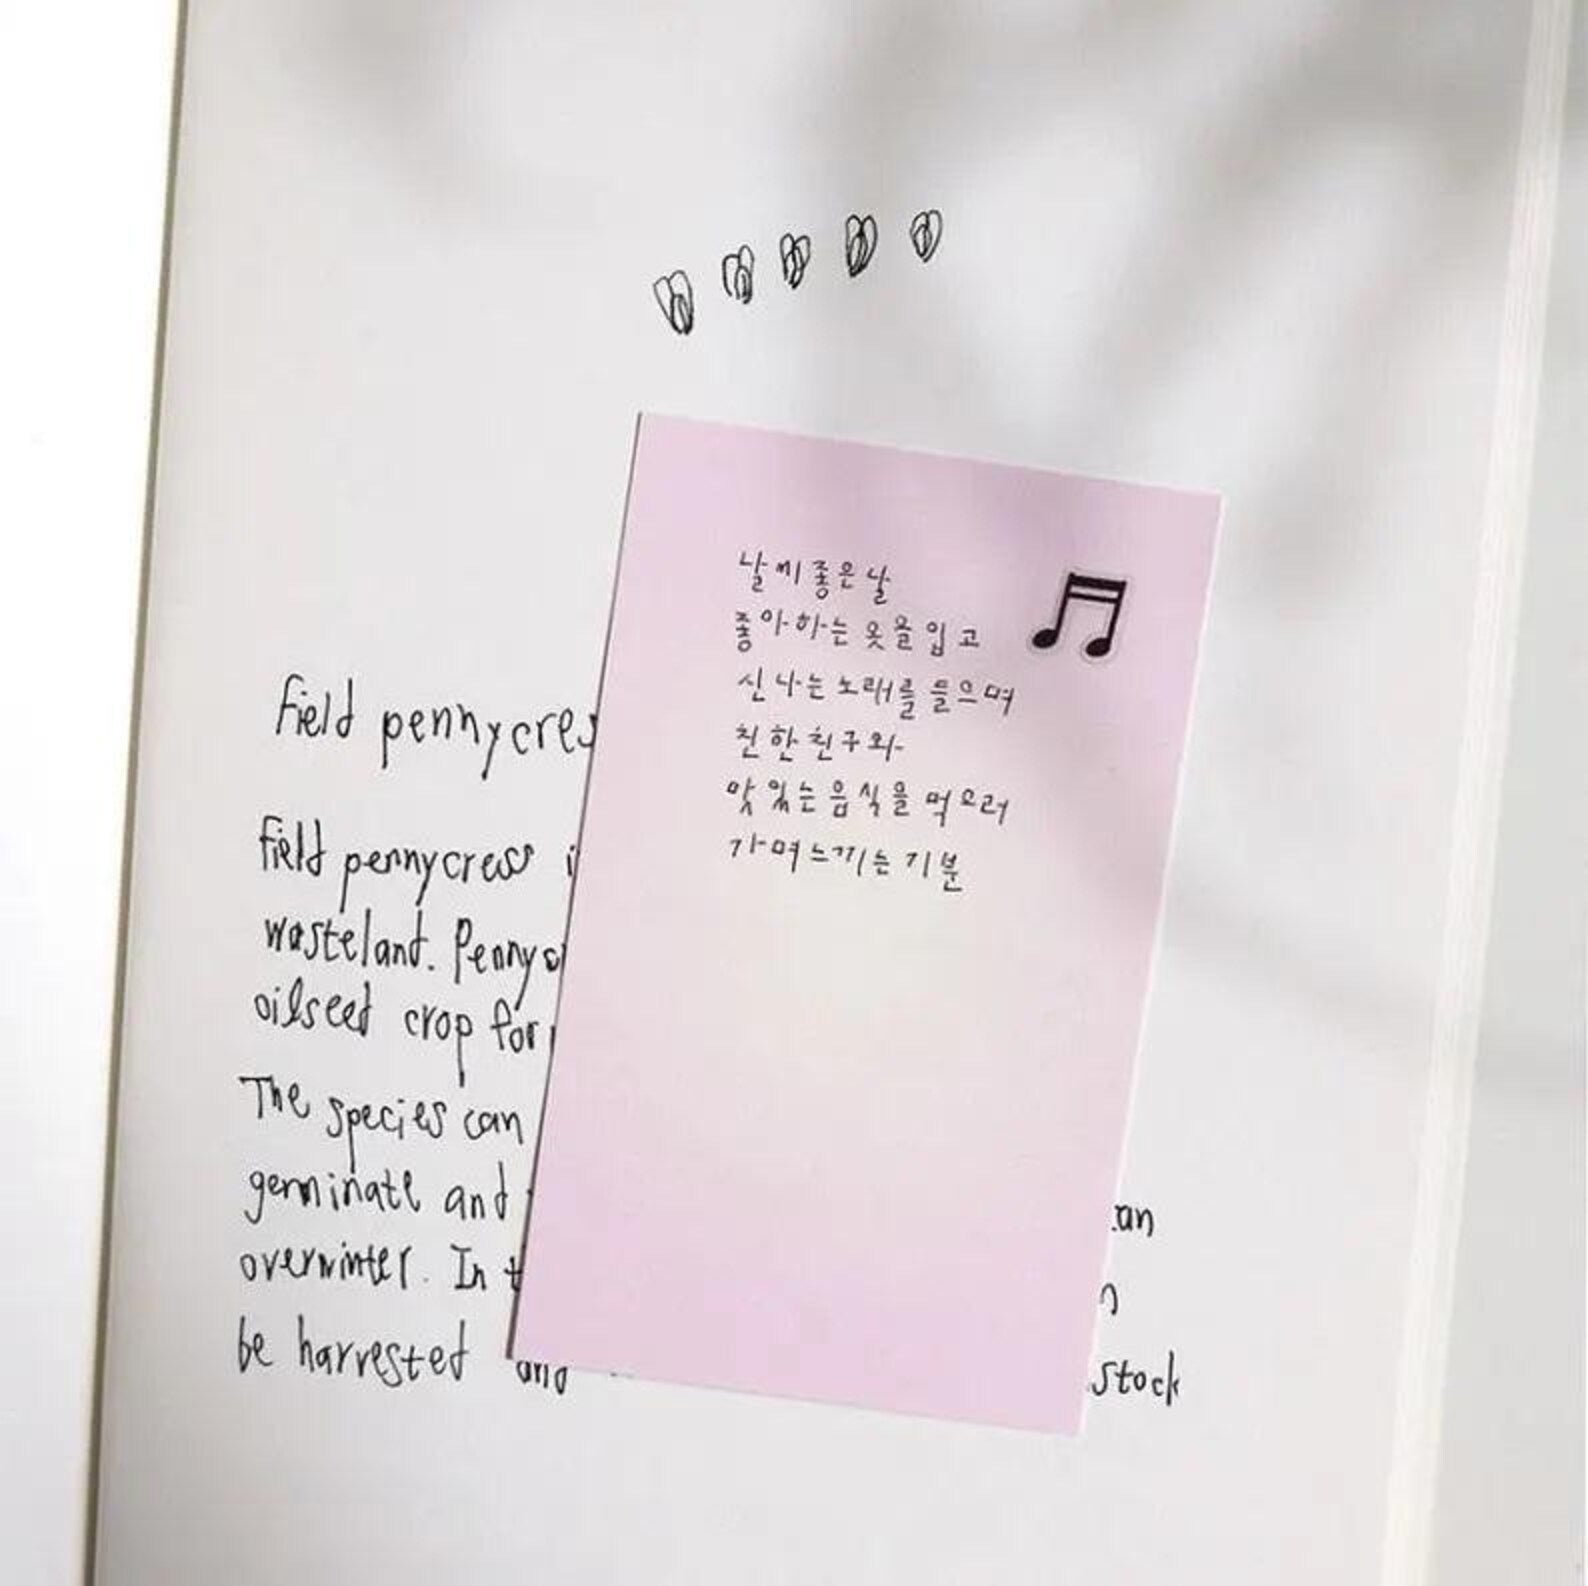 field pennycres
field pennycress i
wasteland. Pennyc
oilseed crop for
The species can
germinate and
overwinter. In t
be harvested and
날씨 좋은 날
좋아하는 옷을 입고
신나는 노래를 들으며
친한 친구와
맛있는 음식을 먹으러
가며 느끼는 기분
can
n
stock